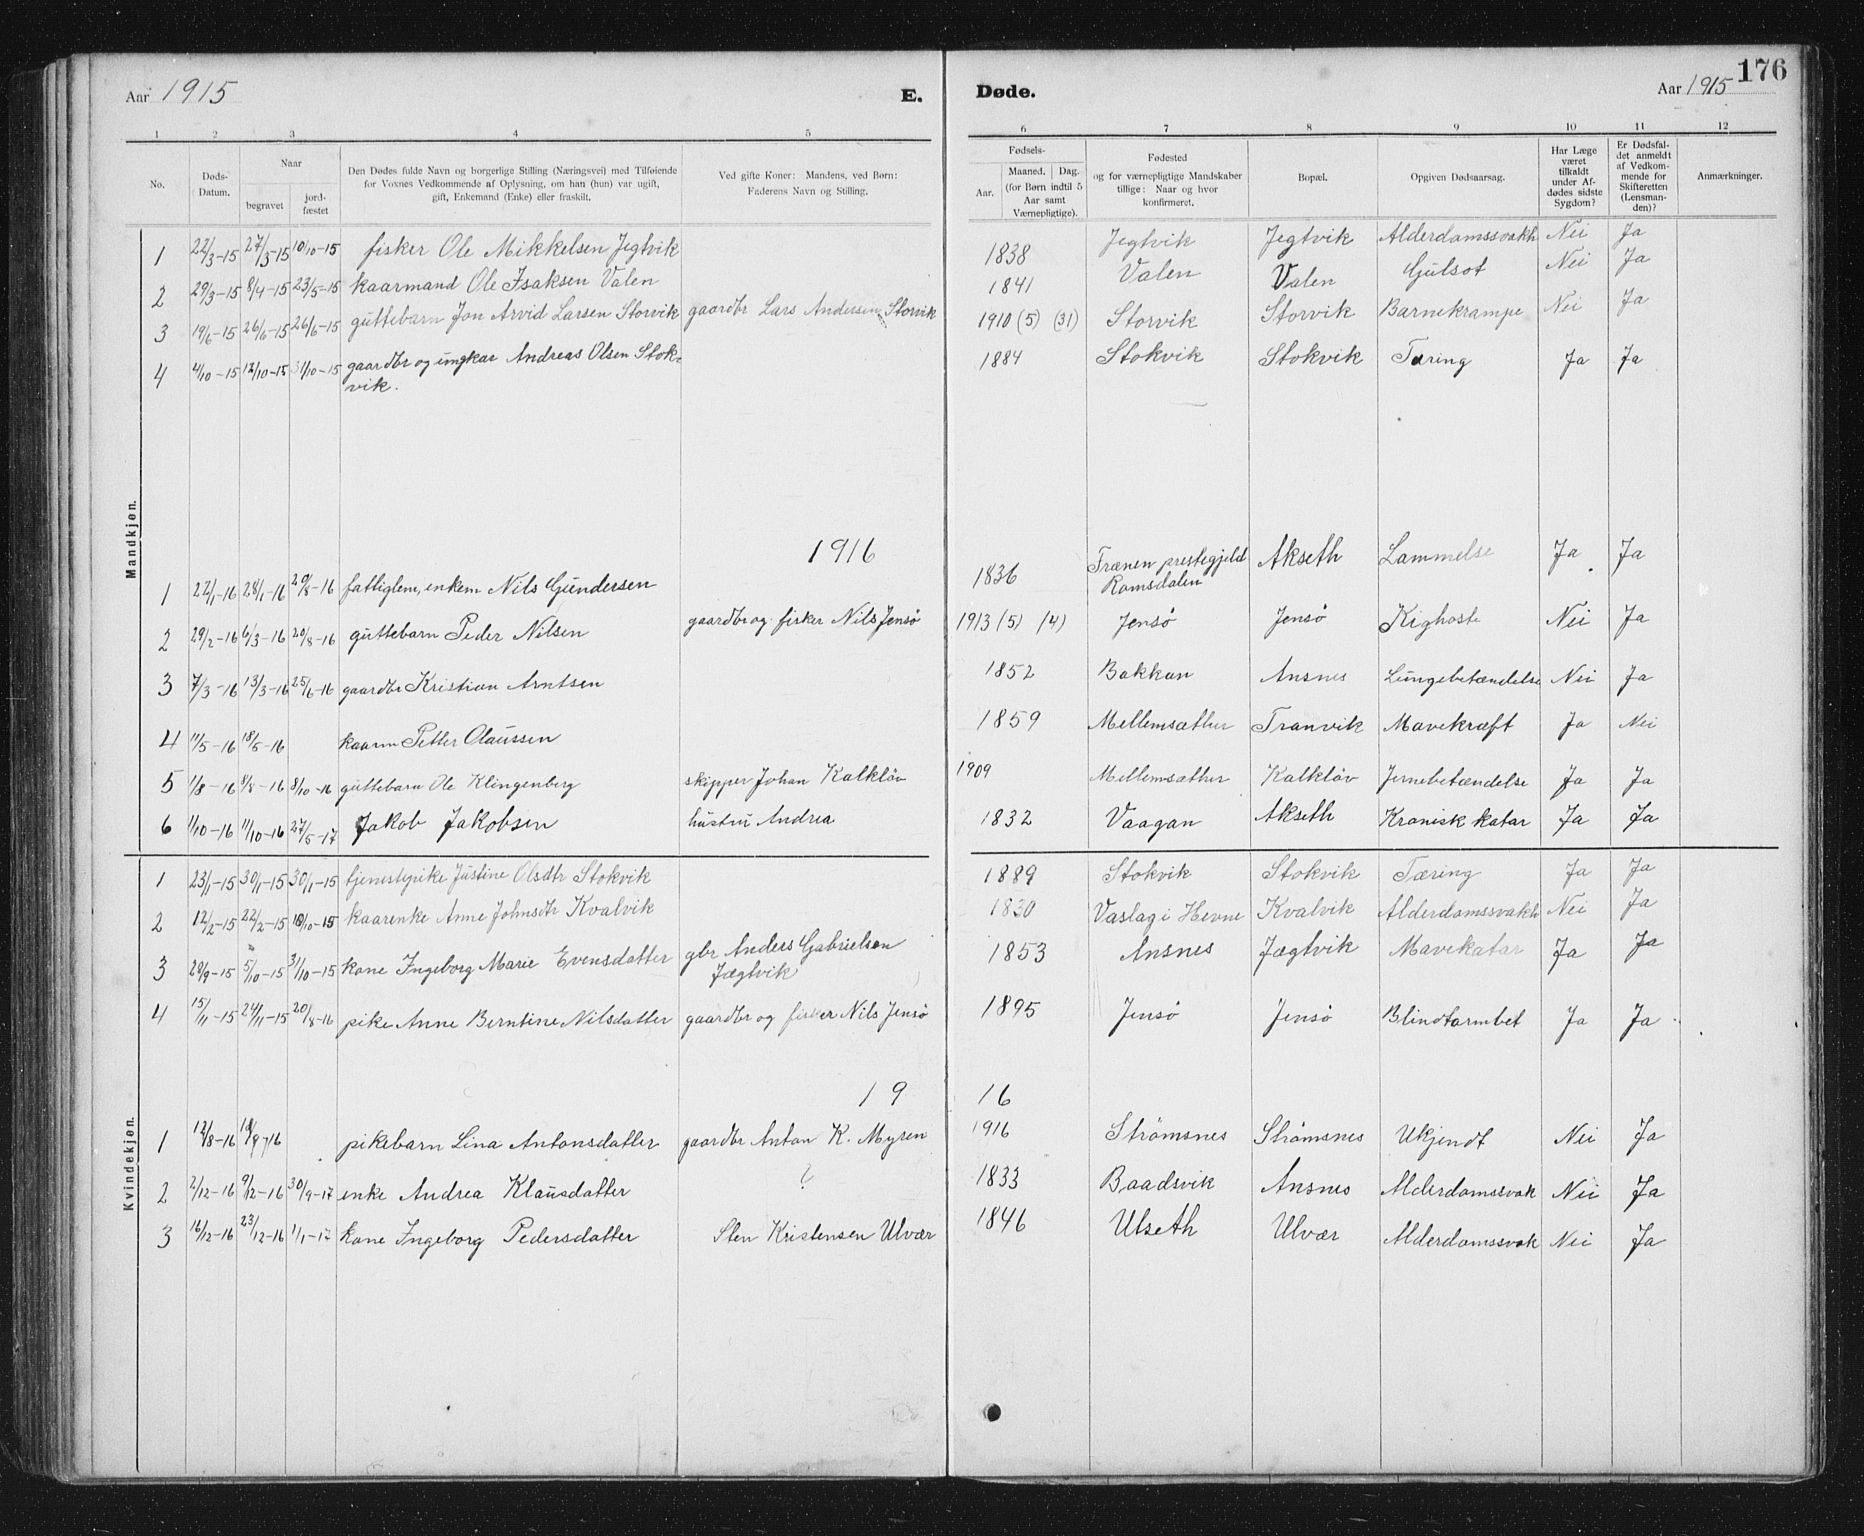 176
Aar 1915 E. Døde. Aar 1915
1 2 3 4 5 6 7 8 9 10 11 12
No. Døds-Datum. Naar begravet jordfæstet Den Dødes fulde Navn og borgerlige Stilling (Næringsvei) med Tilføiende for Voxnes Vedkommende af Oplysning, om han (hun) var ugift, gift, Enkemand (Enke) eller fraskilt. Ved gifte Koner: Mandens, ved Børn: Faderens Navn og Stilling. Fødsels- Aar. Maaned. Dag. (for Børn indtil 5 Aar samt Værnepligtige). Fødested og for værnepligtige Mandskaber tillige: Naar og hvor konfirmeret. Bopæl. Opgiven Dødsaarsag. Har Læge været tilkaldt under Afdødes sidste Sygdom? Er Dødsfaldet anmeldt af Vedkommende for Skifteretten (Lensmanden)? Anmærkninger.
Mandkjøn.
1 22/3-15 27/3-15 10/10-15 fisker Ole Mikkelsen Jegtvik 1838 Jegtvik Jegtvik Alderdomssvakh Nei Ja
2 29/3-15 8/4-15 23/5-15 kaarmand Ole Isaksen Valen 1841 Valen Valen Gulsot Nei Ja
3 19/6-15 26/6-15 26/6-15 guttebarn Jon Arvid Larsen Storvik gaardbr Lars Andersen Storvik 1910 (5) (31) Storvik Storvik Barnekrampe Nei Ja
4 4/10-15 12/10-15 31/10-15 gaardbr og ungkar Andreas Olsen Stok- 1884 Stokvik Stokvik Tæring Ja Ja
vik.
1916
1 22/1-16 28/1-16 20/8-16 fattiglem, enkem Nils Gundersen 1836 Trænen prestegjeld Akseth Lammelse Ja Ja
Romsdalen
2 29/2-16 6/3-16 20/8-16 guttebarn Peder Nilsen gaardbr og fisker Nils Jensø 1913 (5) (4) Jensø Jensø Kighoste Nei Ja
3 7/3-16 13/3-16 25/6-16 gaardbr Kristian Arntsen 1852 Bakkan Ansnes Lungebetændelse Nei Ja
4 11/5-16 18/5-16 kaarm Petter Olaussen 1859 Mellemsæther Tranvik Mavekræft Ja Nei
5 1/8-16 8/8-16 8/10-16 guttebarn Ole Klingenberg skipper Johan Kalkløv 1909 Mellemsæther Kalkløv Jernebetændelse Ja Ja
6 1/10-16 11/10-16 27/5-17 Jakob Jakobsen hustru Andrea 1832 Vaagan Akseth Kronisk katar Ja Ja
Kvindekjøn.
1 23/1-15 30/1-15 30/1-15 tjenestepike Justine Olsdtr Stokvik 1889 Stokvik Stokvik Tæring Ja Ja
2 12/2-15 22/2-15 10/10-15 kaarenke Anne Johnsdtr Kvalvik 1830 Vaslag i Hevne Kvalvik Alderdomssvakh Nei Ja
3 20/9-15 5/10-15 31/10-15 kone Ingeborg Marie Evensdatter gbr Anders Gabrielsen 1853 Ansnes Jægtvik Mavekatar Ja Ja
Jægtvik
4 15/11-15 24/11-15 20/8-16 pike Anne Berntine Nilsdatter gaardbr og fisker Nils Jensø 1895 Jensø Jensø Blindtarmbet Ja Ja
19 16
1 12/8-16 pikebarn Lina Antonsdatter gaardbr Anton K. Myren 1916 Strømsnes Strømsnes Ukjendt Nei Ja
2 2/12-16 9/12-16 30/9-17 enke Andrea Klausdatter ? 1833 Baadsvik Ansnes Alderdomssvak Nei Ja
3 16/12-16 23/12-16 1/1-17 kone Ingeborg Pedersdatter Sten Kristensen Ulvær 1846 Ulseth Ulvær Alderdomssvak Nei Ja